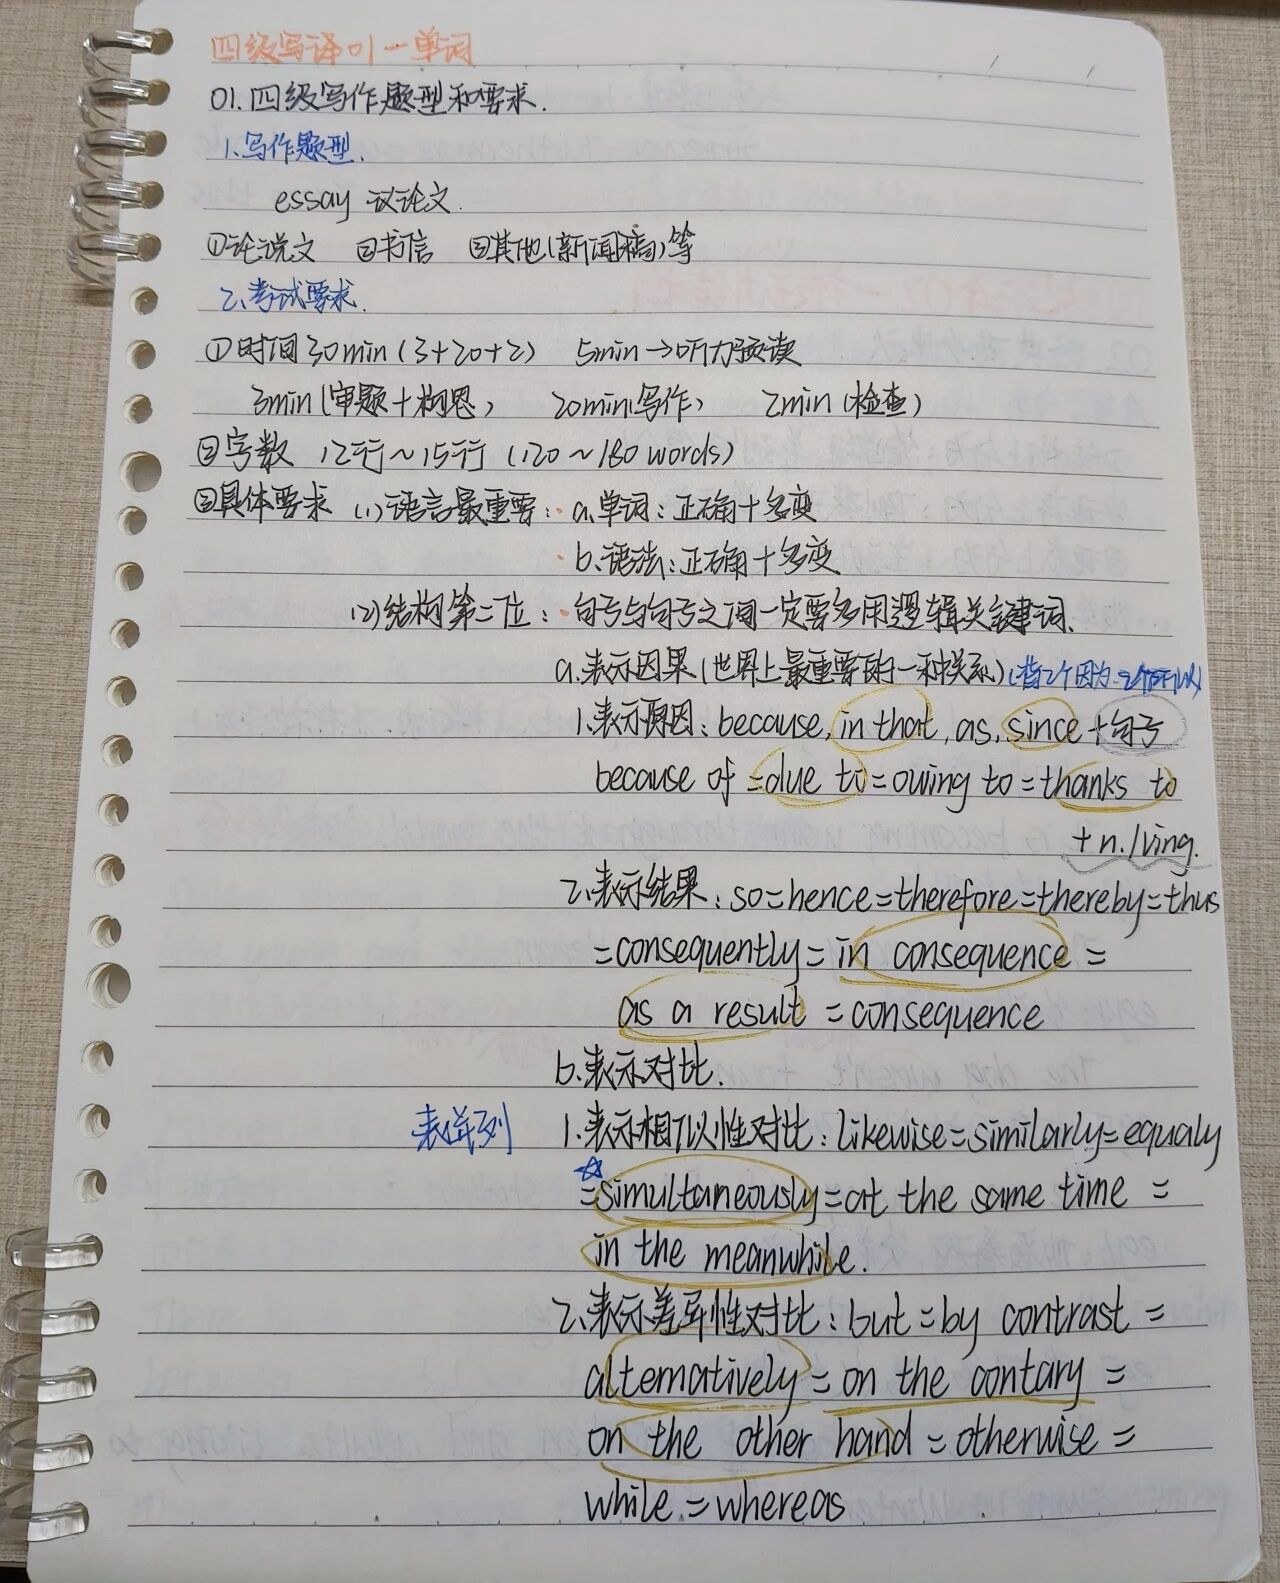 四级写译01一单词
01.四级写作题型和要求.
1.写作题型.
essay 议论文.
①论说文 ②书信 ③其他(新闻稿)等
2.考试要求.
①时间30min(3+20+2) 5min→听力预读
3min(审题+构思) 20min(写作) 2min(检查)
②字数 12行~15行(120~180 words)
③具体要求 (1)语言最重要: a.单词:正确+多变
b.语法:正确+多变
(2)结构第二位: 句子与句子之间一定要多用逻辑关键词.
a.表示因果(世界上最重要的一种关系)(背2个因为.2个所以)
1.表示原因: because, in that, as, since+句子
because of =due to=owing to=thanks to
+n./ving.
2.表示结果: so=hence=therefore=thereby=thus
=consequently=in consequence=
as a result =consequence
b.表示对比.
表并列 1.表示相似性对比: likewise=similarly=equaly
☆=simultaneously=at the same time =
in the meanwhile.
2.表示差异性对比: but =by contrast =
alternatively=on the contary =
on the other hand =otherwise=
while =whereas